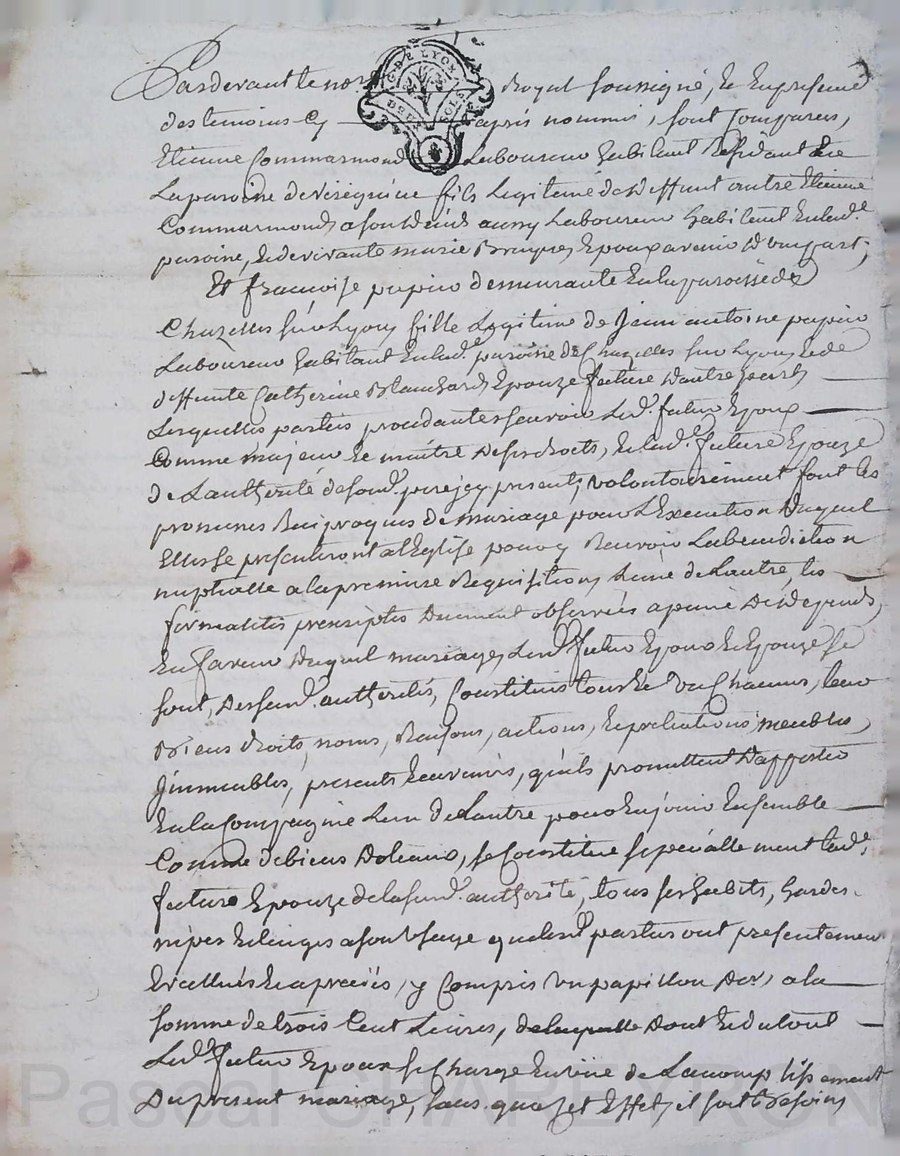 Pardevant le no.re Royal soussigné, et En presence
G. DE LYON
SOLS
des temoins Cy apres nommés, sont Comparus,
Etienne Commarmond Laboureur habitant Residant En
La paroisse de fils Legitime de deffunt autre Etienne
Commarmond, a son deces aussy Laboureur habitant En lad.e
paroisse, & de vivante marie Bruyas, Epoux avenir d'une part,
Et francoise pupier demeurante En la paroisse de
Chazelles sur Lyon, fille Legitime de Jean antoine pupier
Laboureur habitant En lad.e paroisse de Chazelles sur Lyon, & de
deffunte Catherine Blanchard, Epouze future d'autre part,
Lesquelles parties procedantes sçavoir Led. futur Epoux
Comme majeur & maître de ses droits, & lad.e future Epouze
de L'authorité de sond. pere, icy present, volontairement font les
promesses Reciproques de mariage pour L'Execution duquel
Elles se presenteront a l'Eglise pour y Recevoir La benediction
nuptialle a la premiere Requisition, L'une de L'autre, les
formalités prescriptes duement observées a peine de depends,
En faveur duquel mariage, Lesd. futur Epoux & Epouze se
sont, de susd. authorités, Constitués tous & un Chacuns, leur
Biens droits, noms, Raisons, actions, & pretentions, meubles,
Jmmeubles, presents & avenirs, qu'ils promettent d'apporter
En la Compagnie L'un de L'autre pour En jouir Ensemble
Comme de biens dotaux, se Constitue specialle ment lad.e
future Epouze de la susd. authorité, tous ses habits, hardes
nipes & linges a son Usage que lesd. parties ont presentement
Evallués & apreciés, y Compris un papillon d'or, a la
somme de trois Cent Livres, de laquelle dont & du tout
Led. futur Epoux se Charge En vüe de L'accomplissement
du present mariage, sans qu'a cet Effet, il soit Besoin
Pascal CHAPEYRON